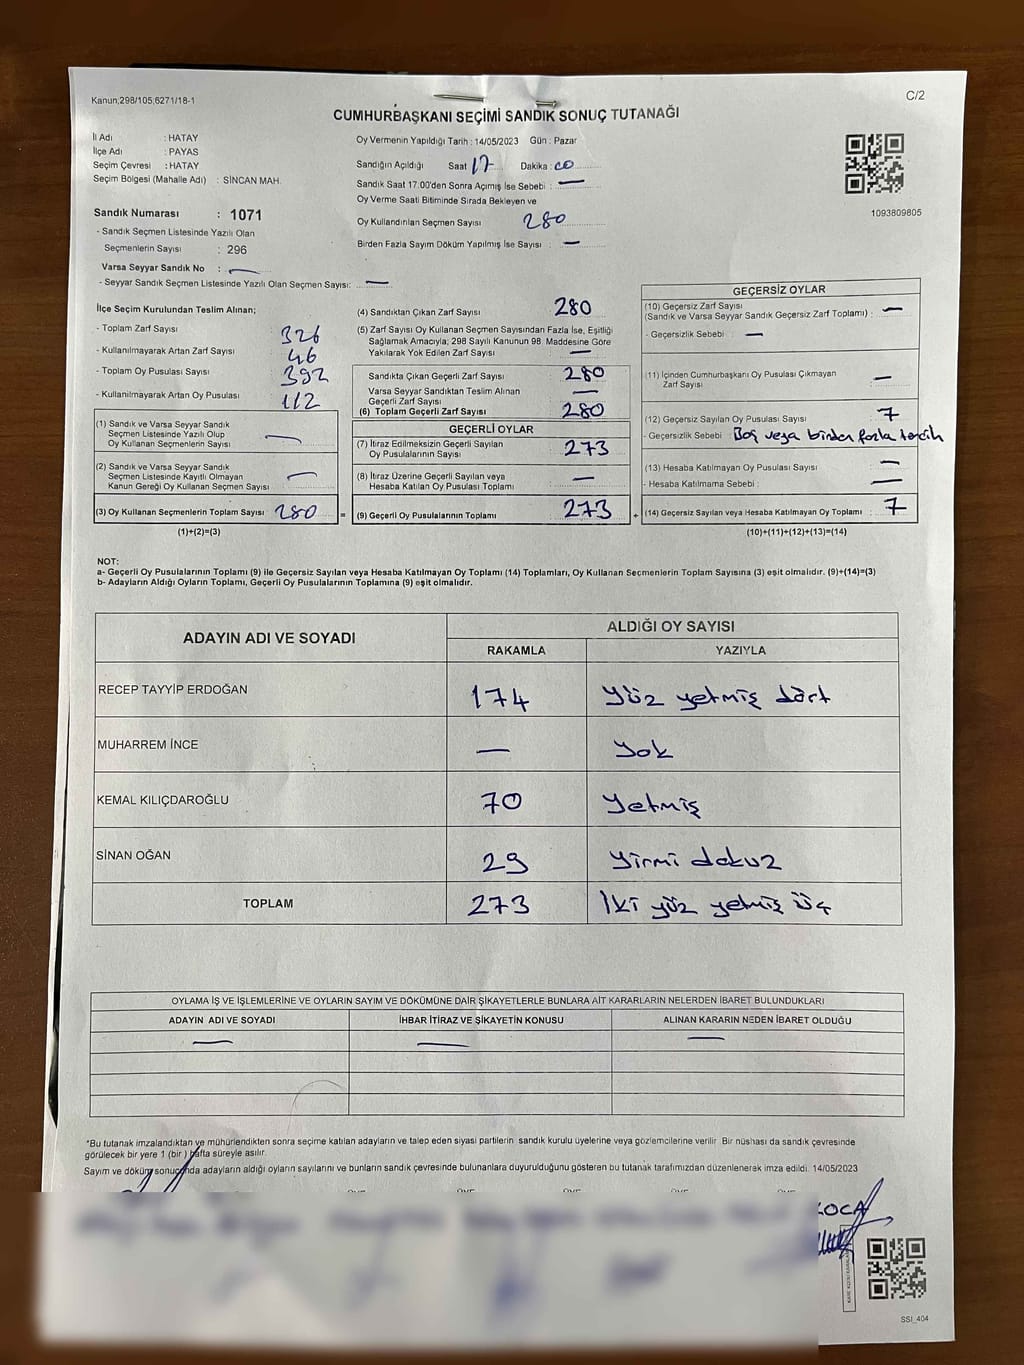 Kanun;298/105;6271/18-1
C/2
CUMHURBAŞKANI SEÇİMİ SANDIK SONUÇ TUTANAĞI
İl Adı : HATAY
İlçe Adı : PAYAS
Seçim Çevresi : HATAY
Seçim Bölgesi (Mahalle Adı) : SİNCAN MAH.
Oy Vermenin Yapıldığı Tarih : 14/05/2023 Gün : Pazar
Sandığın Açıldığı Saat 17 Dakika : 00
Sandık Saat 17.00'den Sonra Açımış İse Sebebi : —
Oy Verme Saati Bitiminde Sırada Bekleyen ve
Oy Kullandırılan Seçmen Sayısı 280
Birden Fazla Sayım Döküm Yapılmış İse Sayısı : —
1093809805
Sandık Numarası : 1071
- Sandık Seçmen Listesinde Yazılı Olan
Seçmenlerin Sayısı : 296
Varsa Seyyar Sandık No : —
- Seyyar Sandık Seçmen Listesinde Yazılı Olan Seçmen Sayısı: —
İlçe Seçim Kurulundan Teslim Alınan;
- Toplam Zarf Sayısı 326
- Kullanılmayarak Artan Zarf Sayısı 46
- Toplam Oy Pusulası Sayısı 392
- Kullanılmayarak Artan Oy Pusulası 112
(1) Sandık ve Varsa Seyyar Sandık
Seçmen Listesinde Yazılı Olup
Oy Kullanan Seçmenlerin Sayısı —
(2) Sandık ve Varsa Seyyar Sandık
Seçmen Listesinde Kayıtlı Olmayan
Kanun Gereği Oy Kullanan Seçmen Sayısı —
(3) Oy Kullanan Seçmenlerin Toplam Sayısı 280 =
(1)+(2)=(3)
(4) Sandıktan Çıkan Zarf Sayısı 280
(5) Zarf Sayısı Oy Kullanan Seçmen Sayısından Fazla İse, Eşitliği
Sağlamak Amacıyla; 298 Sayılı Kanunun 98. Maddesine Göre
Yakılarak Yok Edilen Zarf Sayısı —
Sandıkta Çıkan Geçerli Zarf Sayısı 280
Varsa Seyyar Sandıktan Teslim Alınan
Geçerli Zarf Sayısı —
(6) Toplam Geçerli Zarf Sayısı 280
GEÇERLİ OYLAR
(7) İtiraz Edilmeksizin Geçerli Sayılan
Oy Pusulalarının Sayısı 273
(8) İtiraz Üzerine Geçerli Sayılan veya
Hesaba Katılan Oy Pusulası Toplamı —
(9) Geçerli Oy Pusulalarının Toplamı 273 +
GEÇERSİZ OYLAR
(10) Geçersiz Zarf Sayısı
(Sandık ve Varsa Seyyar Sandık Geçersiz Zarf Toplamı) : —
- Geçersizlik Sebebi : —
(11) İçinden Cumhurbaşkanı Oy Pusulası Çıkmayan
Zarf Sayısı —
(12) Geçersiz Sayılan Oy Pusulası Sayısı : 7
- Geçersizlik Sebebi : Boş veya birden fazla tercih
(13) Hesaba Katılmayan Oy Pusulası Sayısı : —
- Hesaba Katılmama Sebebi : —
(14) Geçersiz Sayılan veya Hesaba Katılmayan Oy Toplamı : 7
(10)+(11)+(12)+(13)=(14)
NOT:
a- Geçerli Oy Pusulalarının Toplamı (9) ile Geçersiz Sayılan veya Hesaba Katılmayan Oy Toplamı (14) Toplamları, Oy Kullanan Secmenlerin Toplam Sayısına (3) eşit olmalıdır. (9)+(14)=(3)
b- Adayların Aldığı Oyların Toplamı, Geçerli Oy Pusulalarının Toplamına (9) eşit olmalıdır.
ADAYIN ADI VE SOYADI
ALDIĞI OY SAYISI
RAKAMLA YAZIYLA
RECEP TAYYİP ERDOĞAN 174 Yüz yetmiş dört
MUHARREM İNCE — Yok
KEMAL KILIÇDAROĞLU 70 Yetmiş
SİNAN OĞAN 29 Yirmi dokuz
TOPLAM 273 İki yüz yetmiş üç
OYLAMA İŞ VE İŞLEMLERİNE VE OYLARIN SAYIM VE DÖKÜMÜNE DAİR ŞİKAYETLERLE BUNLARA AİT KARARLARIN NELERDEN İBARET BULUNDUKLARI
ADAYIN ADI VE SOYADI İHBAR İTİRAZ VE ŞİKAYETİN KONUSU ALINAN KARARIN NEDEN İBARET OLDUĞU
— — —
*Bu tutanak imzalandıktan ve mühürlendikten sonra seçime katılan adayların ve talep eden siyasi partilerin sandık kurulu üyelerine veya gözlemcilerine verilir. Bir nüshası da sandık çevresinde
görülecek bir yere 1 (bir) hafta süreyle asılır.
Sayım ve döküm sonucunda adayların aldığı oyların sayılarını ve bunların sandık çevresinde bulunanlara duyurulduğunu gösteren bu tutanak tarafımızdan düzenlenerek imza edildi. 14/05/2023
KOCA
SSI_404